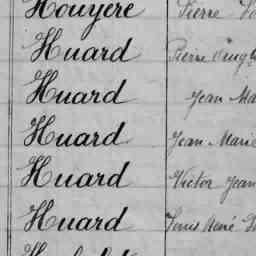 Houyère Pierre
Huard Pierre
Huard Jean Ma
Huard Jean-Marie
Huard Victor Jean
Huard Louis René